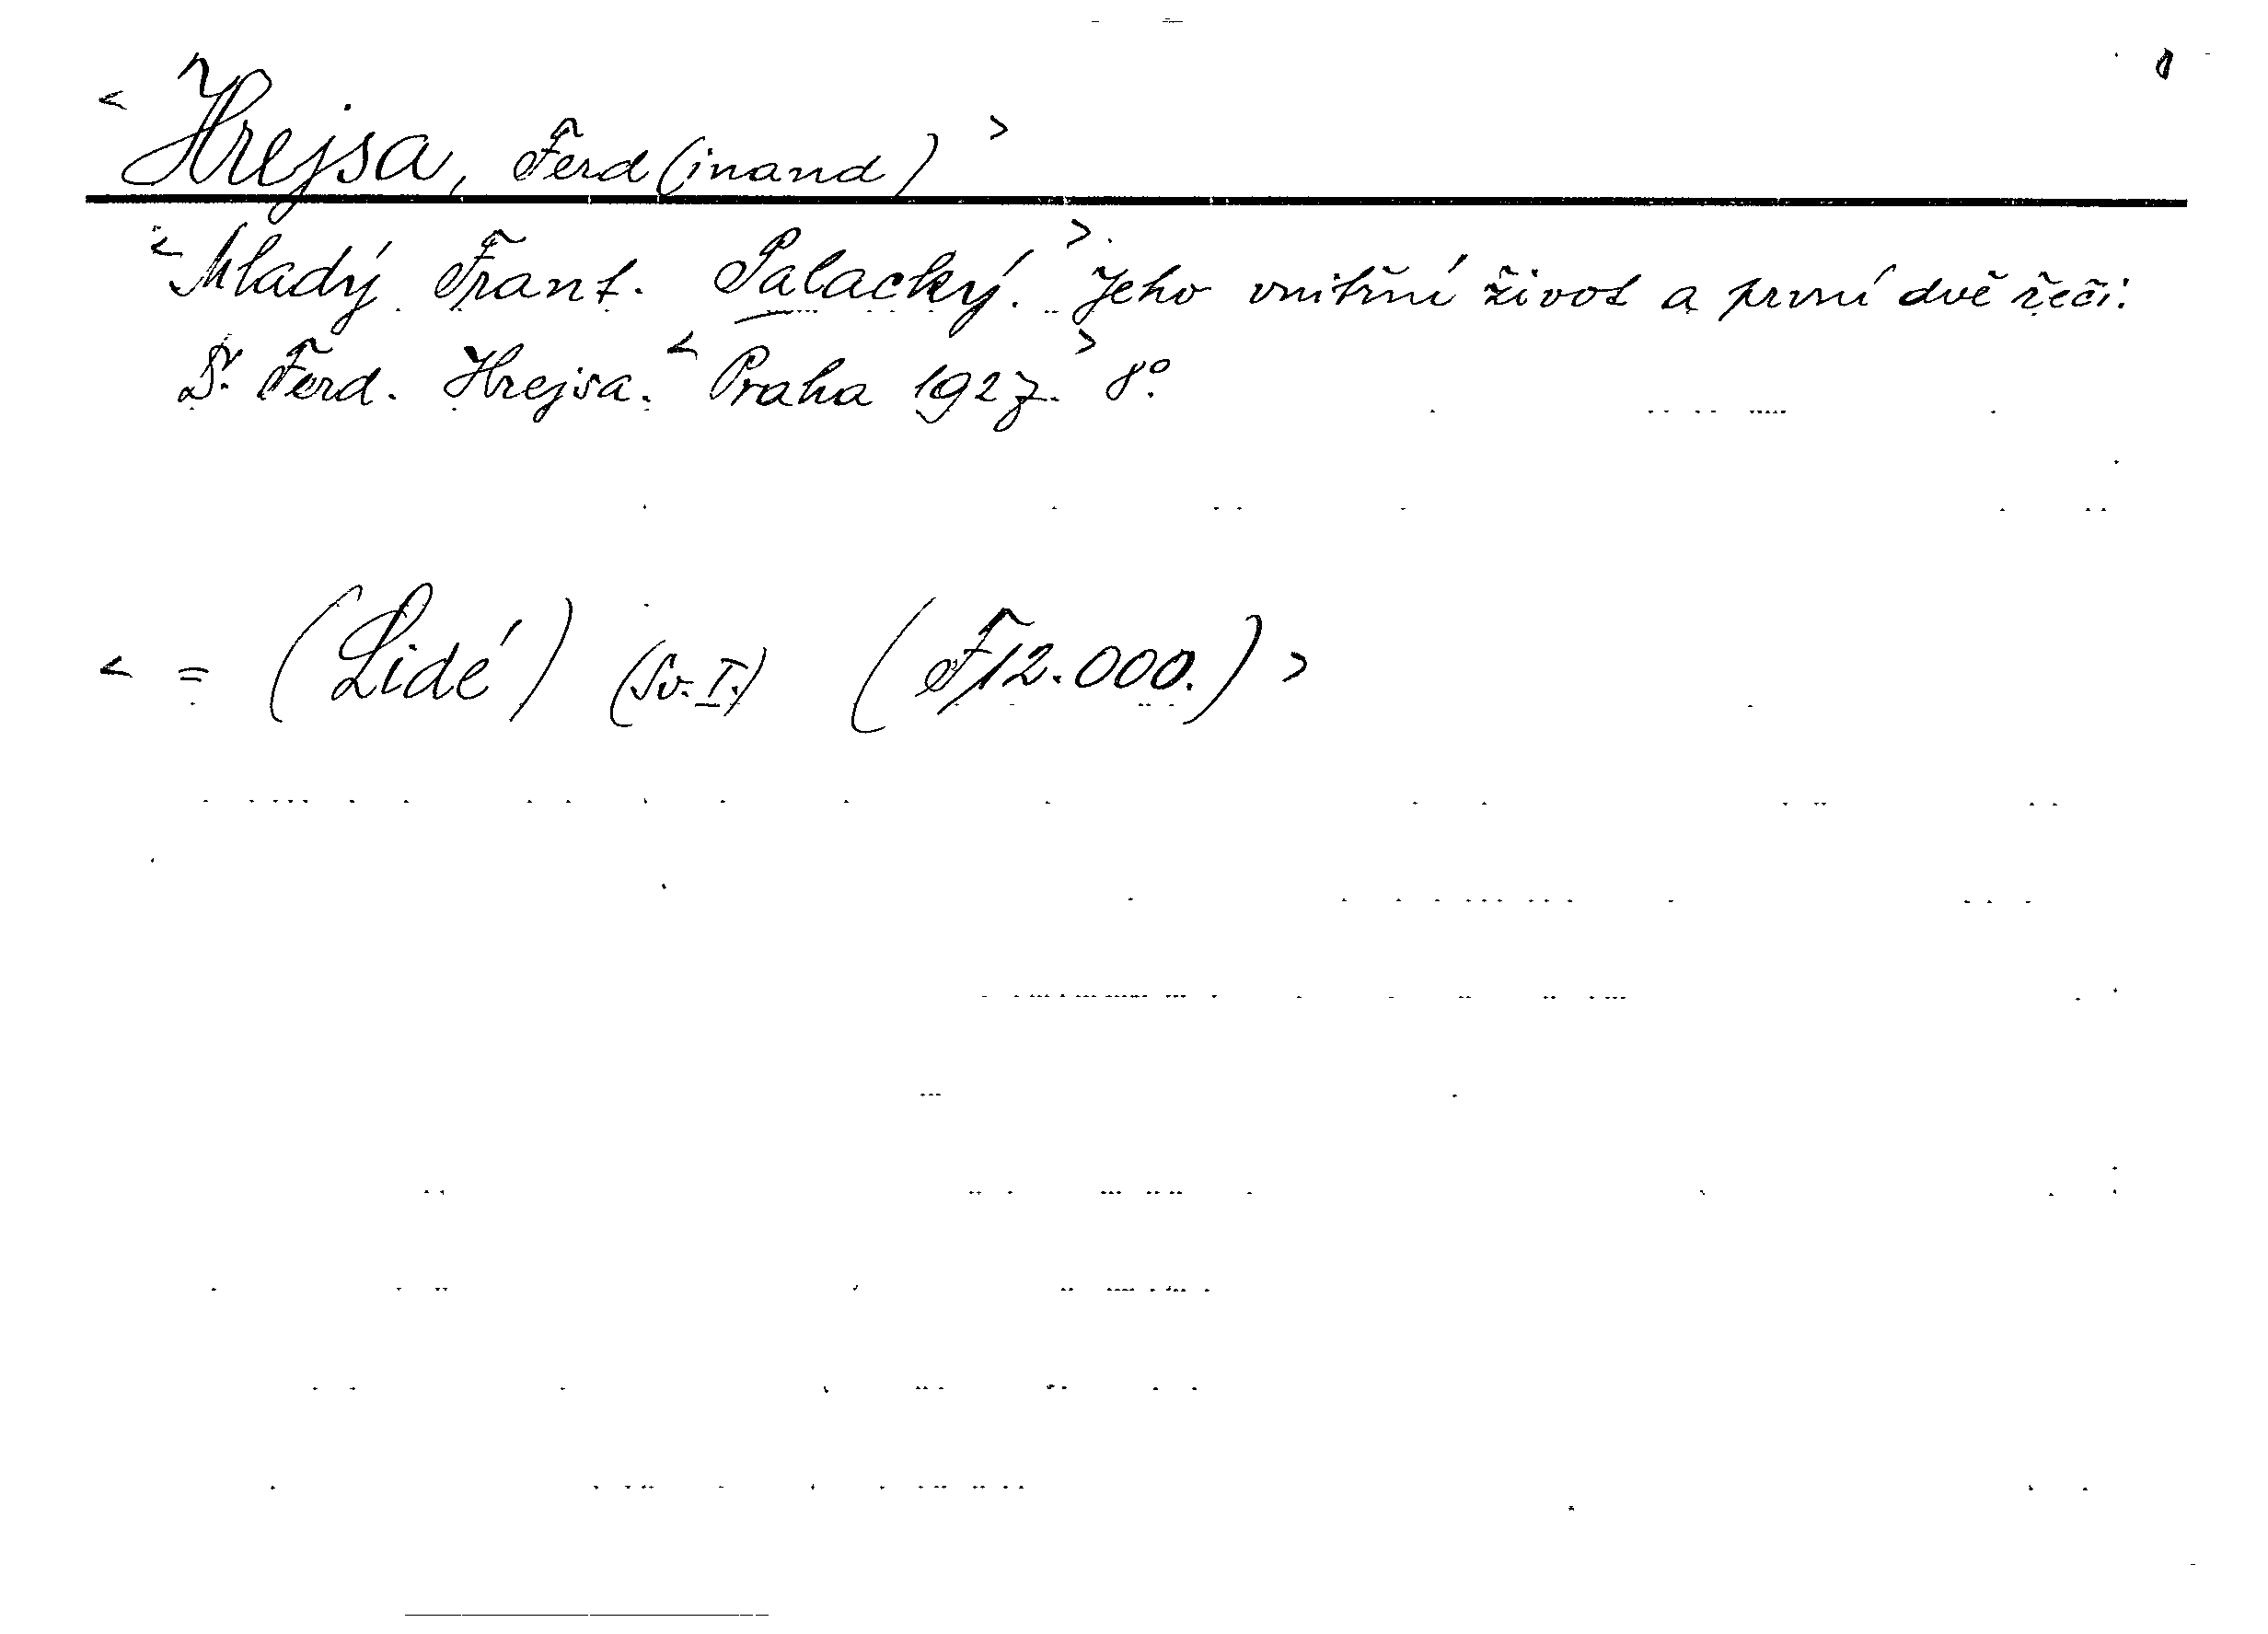 < Hrejsa, Ferd(inand) >
< Mladý Frant. Palacký. > Jeho vnitřní život a první dvě řeči.
Dr. Ferd. Hrejsa. < Praha 1927. > 8º.
< = (Lidé) (Sv. I.) (F12.000.) >